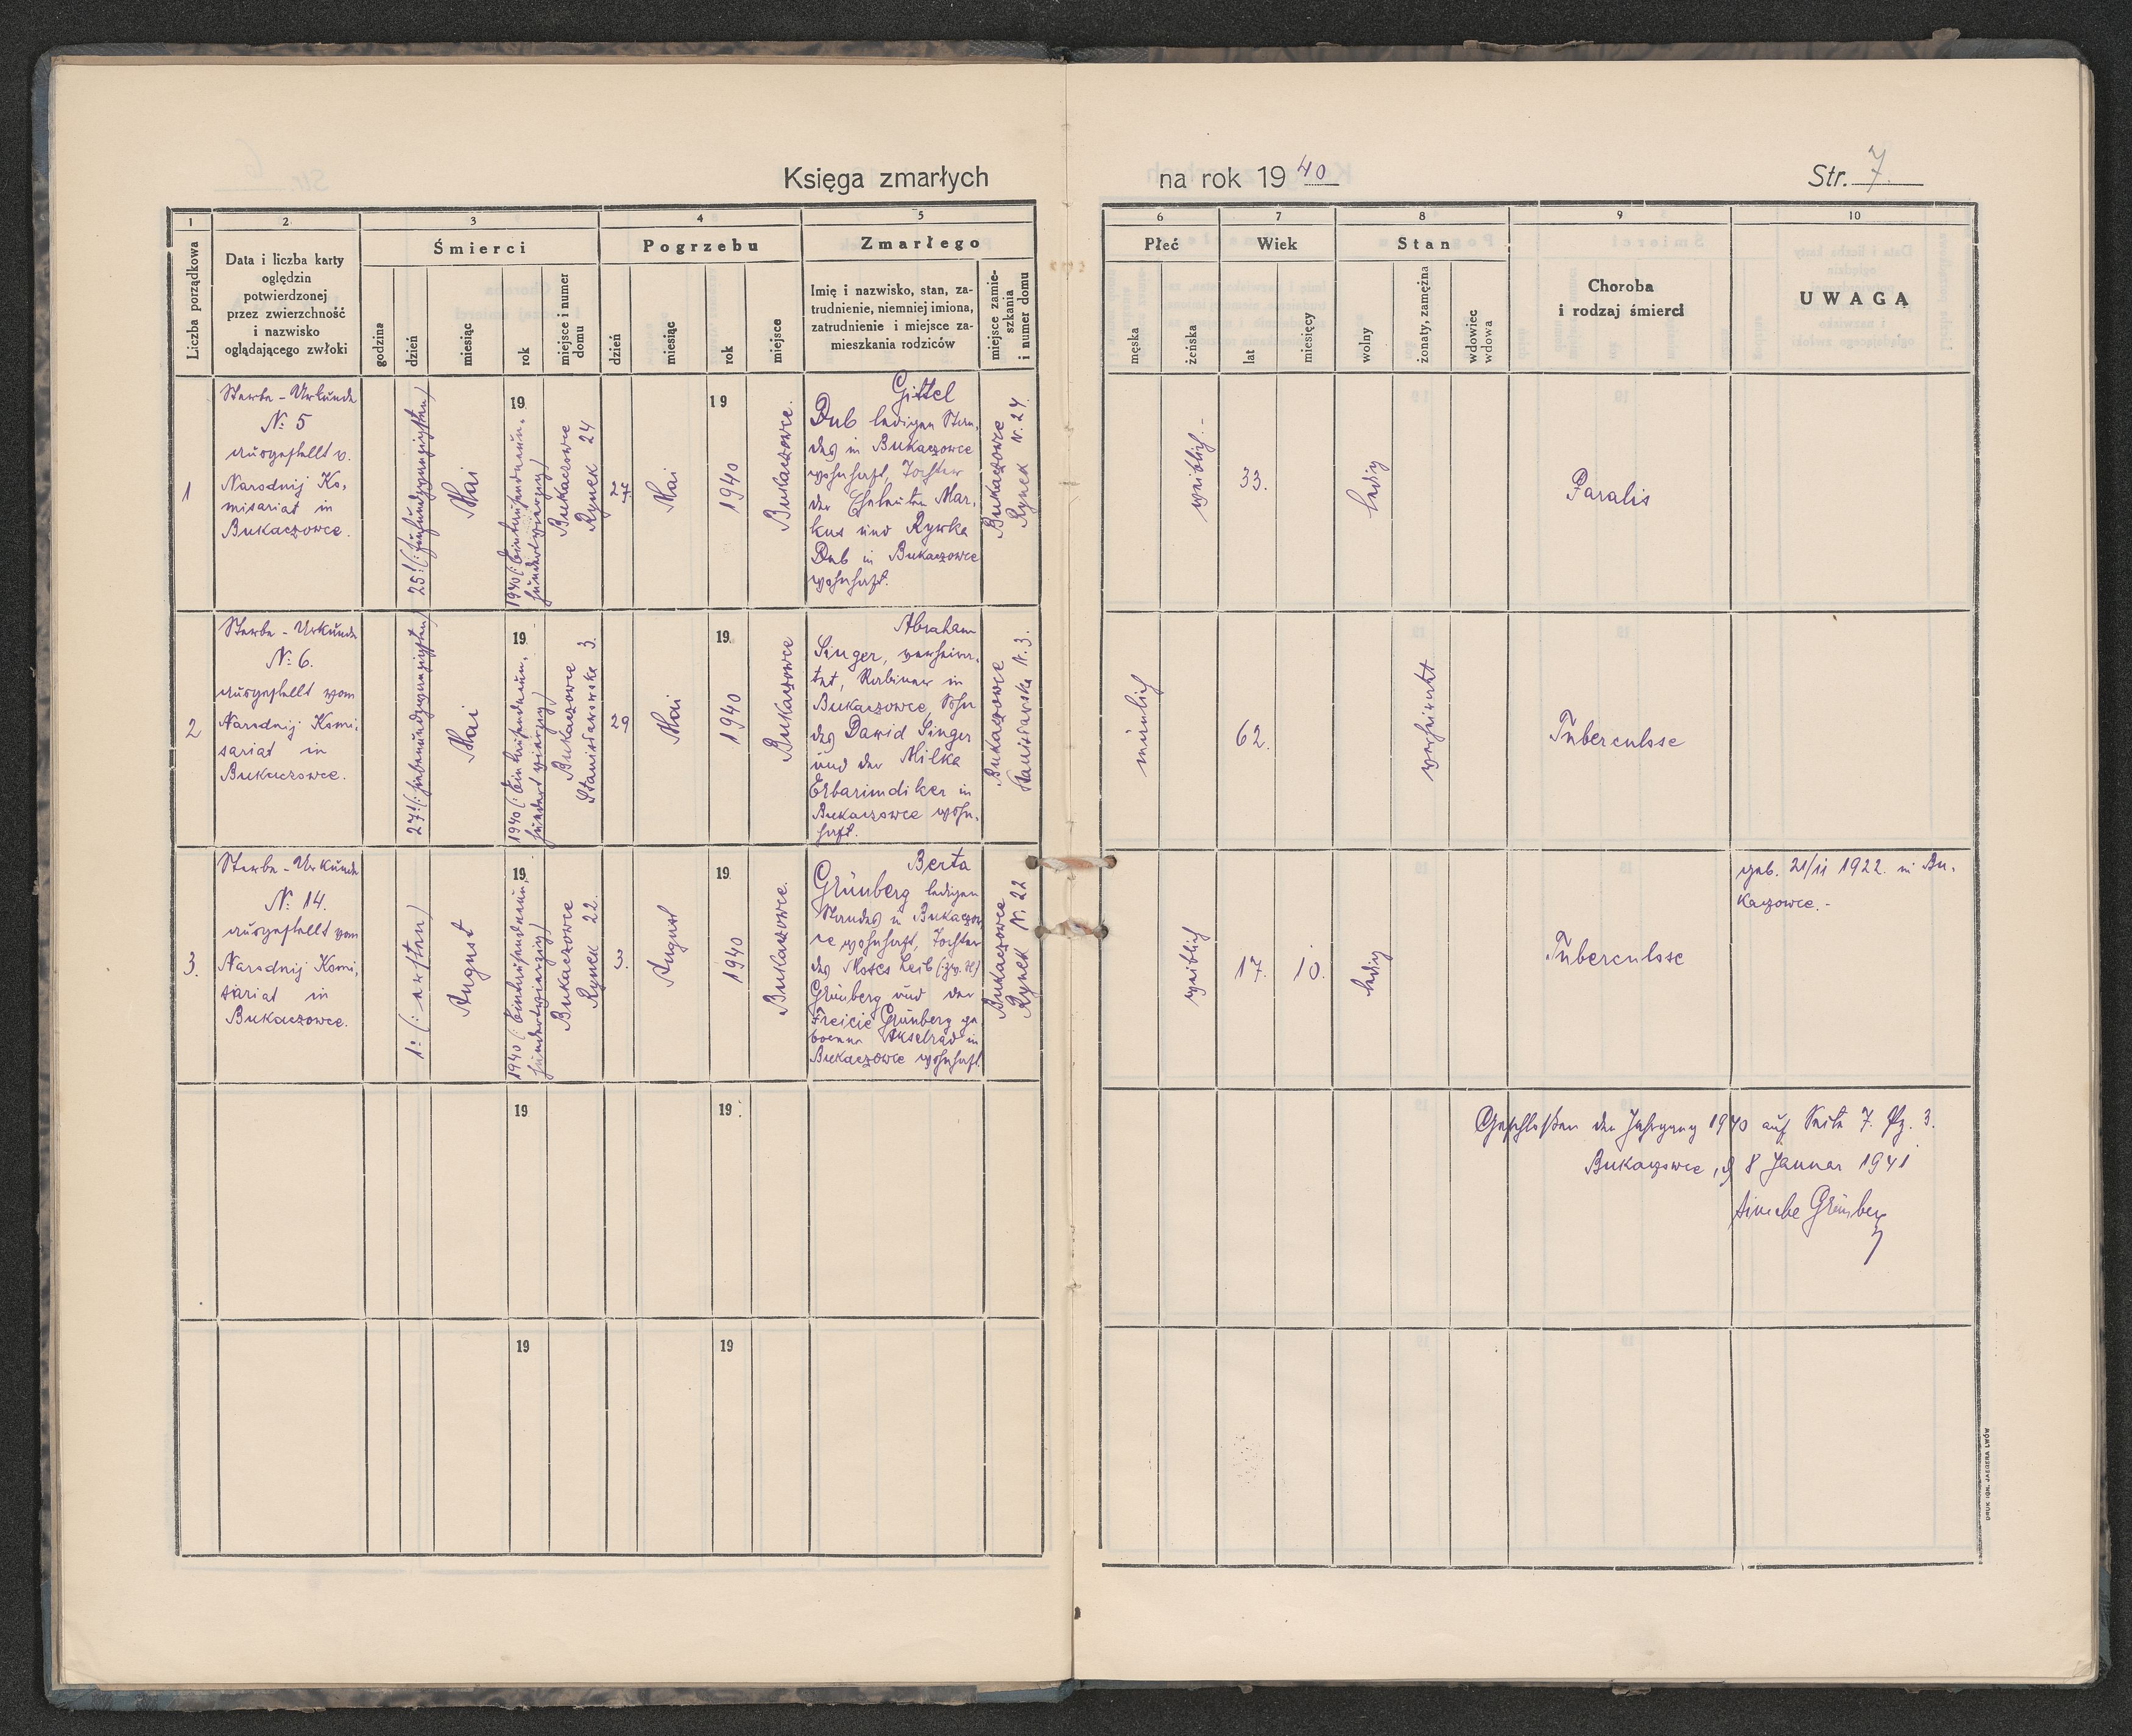 Księga zmarłych
na rok 19 40
Str. 7.
1
2
3
4
5
6
7
8
9
10
Liczba porządkowa
Data i liczba karty
oględzin
potwierdzonej
przez zwierzchność
i nazwisko
oglądającego zwłoki
Śmierci
godzina
dzień
miesiąc
rok
miejsce i numer
domu
Pogrzebu
dzień
miesiąc
rok
miejsce
Zmarłego
Imię i nazwisko, stan, za-
trudnienie, niemniej imiona,
zatrudnienie i miejsce za-
mieszkania rodziców
miejsce zamie-
szkania
i numer domu
Płeć
męska
żeńska
Wiek
lat
miesięcy
Stan
wolny
żonaty, zamężna
wdowiec
wdowa
Choroba
i rodzaj śmierci
UWAGA
1
Sterbe - Urkunde
№ 5
ausgestellt v.
Narodnij Ko-
misariat in
Bukaczowce.
25!(: fünfundzwanzigsten)
Mai
19
1940 (: Eintausendneun-
hundertvierzig)
Bukaczowce
Rynek 24
27.
Mai
19
1940
Bukaczowce.
Gittel
Dub ledigen Stan-
des in Bukaczowce
wohnhaft, Tochter
der Eheleute Mar-
kus und Rywka
Dub in Bukaczowce
wohnhaft.
Bukaczowce
Rynek N. 24
weiblich.-
33.
ledig
Paralis
2
Sterbe - Urkunde
№ 6.
ausgestellt vom
Narodnij Komi-
sariat in
Bukaczowce.
27!(: siebenundzwanzigsten)
Mai
19
1940 (: Eintausendneun-
hundertvierzig)
Bukaczowce
Stanisławowska 3.
29
Mai
19
1940
Bukaczowce
Abraham
Singer, verheira-
tet, Rabiner in
Bukaczowce, Sohn
des Dawid Singer
und der Milka
Erbarimdiker in
Bukaczowce wohn-
haft.
Bukaczowce
N. 3.
männlich
62.
verheiratet
Tuberculose
3.
Sterbe - Urkunde
№ 14.
ausgestellt vom
Narodnij Komi-
sariat in
Bukaczowce.
1! (: ersten)
August
19
1940 (: Eintausendneun-
hundertvierzig)
Bukaczowce
Rynek 22.
3.
August
19
1940
Bukaczowce.
Berta
Grünberg ledigen
Standes in Bukaczow-
ce wohnhaft, Tochter
des Moses Leib
Grünberg und der
Freicie Grünberg ge
borene Akselrad in
Bukaczowce wohnhaft.
Bukaczowce
Rynek N. 22
weiblich
17.
10.
ledig
Tuberculose
geb. 21/11 1922. in Bu-
kaczowce.-
19
19
Geschloßen den Jahrgang 1940 auf Seite 7. Pz. 3.
Bukaczowce, d 8 Januar 1941
Simche Grünberg
19
19
DRUK IGN. JAEGERA LWÓW